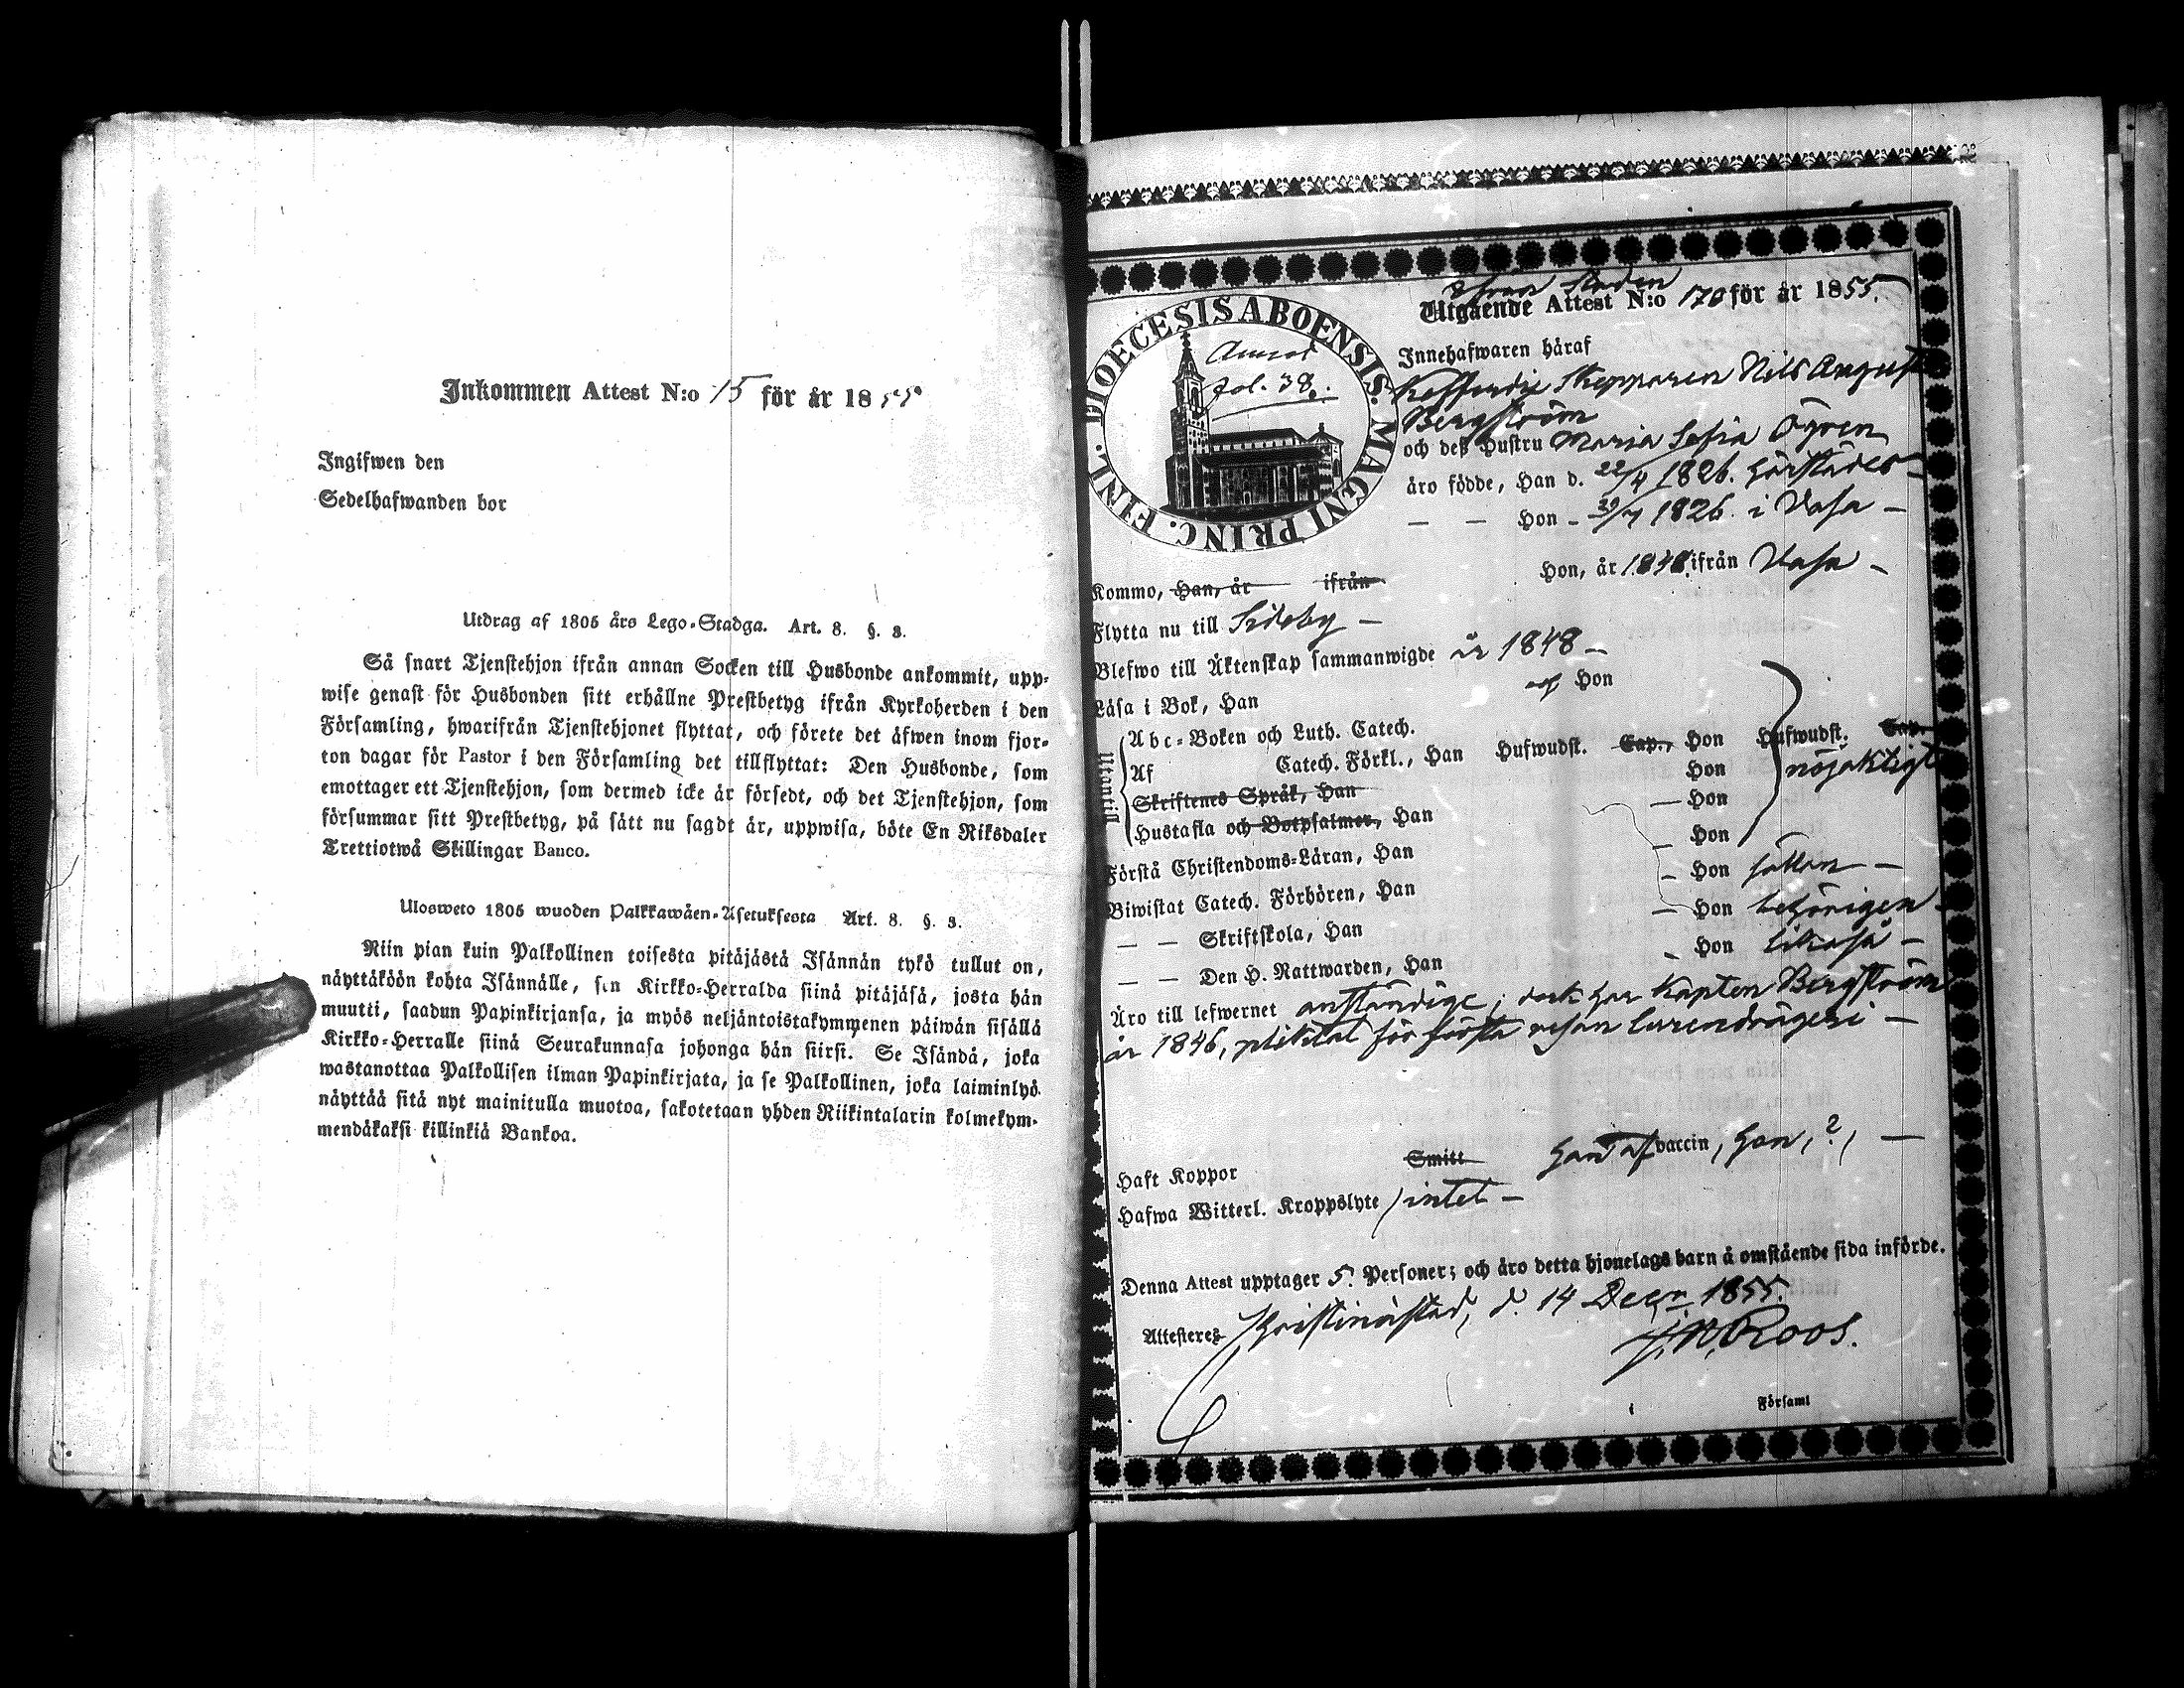 Inkommen Attest N:o 15 för år 1855
Ingifwen den
Sedelhafwanden bor
Utdrag af 1805 års Lego-Stadga. Art. 8. §. 3.
Så snart Tjenstehjon ifrån annan Socken till Husbonde ankommit, upp-
wise genast för Husbonden sitt erhållne Prestbetyg ifrån Kyrkoherden i den
Församling, hwarifrån Tjenstehjonet flyttat, och förete det äfwen inom fjor-
ton dagar för Pastor i den Församling det tillflyttat: Den Husbonde, som
emottager ett Tjenstehjon, som dermed icke är försedt, och det Tjenstehjon, som
försummar sitt Prestbetyg, på sätt nu sagdt är, uppwisa, böte En Riksdaler
Trettiotwå Skillingar Banco.
Ulosweto 1805 wuoden Palkkawäen-Asetuksesta Art. 8. §. 3.
Niin pian kuin Palkollinen toisesta pitäjästä Isännän tykö tullut on,
näyttäköön kohta Isännälle, sen Kirkko-Herralda siinä pitäjäsä, josta hän
muutti, saadun Papinkirjansa, ja myös neljäntoistakymmenen päiwän sisällä
Kirkko-Herralle siinä Seurakunnasa johonga hän siirsi. Se Isändä, joka
wastanottaa Palkollisen ilman Papinkirjata, ja se Palkollinen, joka laiminlyö
näyttää sitä nyt mainitulla muotoa, sakotetaan yhden Riikintalarin kolmekym-
mendäkaksi killinkiä Bankoa.
DIOECESIS ABOENSIS. MAGNI PRINC. FINL.
fol. 38.
Utgående Attest N:o 170 för år 1855.
Innehafwaren häraf
Skepparen Nils August
Bergström
och deß Hustru Maria Sofia Ögren
äro födde, Han d. 22/4 1826. härstädes
— — Hon - 1826. i Vasa —
Kommo, Han, år ifrån Hon, år 1848 ifrån Vasa —
Flytta nu till Sideby —
Blefwo till Äktenskap sammanwigde år 1848 —
Läsa i Bok, Han och Hon
Utantill
Abc-Boken och Luth. Catech.
Af Catech. Förkl., Han Hufwudst. Cap., Hon Hufwudst. Cap.
Skriftenes Språk, Han Hon nöjaktigt
Hustafla och Botpsalmer, Han — Hon
Förstå Christendoms-Läran, Han — Hon
Biwistat Catech. Förhören, Han — Hon sällan —
— — Skriftskola, Han — Hon behörigen —
— — Den H. Nattwarden, Han — Hon likaså —
Äro till lefwernet anständige; dock har Kapten Bergström
år 1846, pliktat för första resan lurendrägeri —
Haft Koppor Smitt Han af vaccin, hon, ?, —
Hafwa Witterl. Kroppslyte / intet —
Denna Attest upptager 5. Personer; och äro detta hjonelags barn å omstående sida införde.
Attesteres Kristinestad, d. 14 Decr. 1855.
J. N. Roos.
Församl